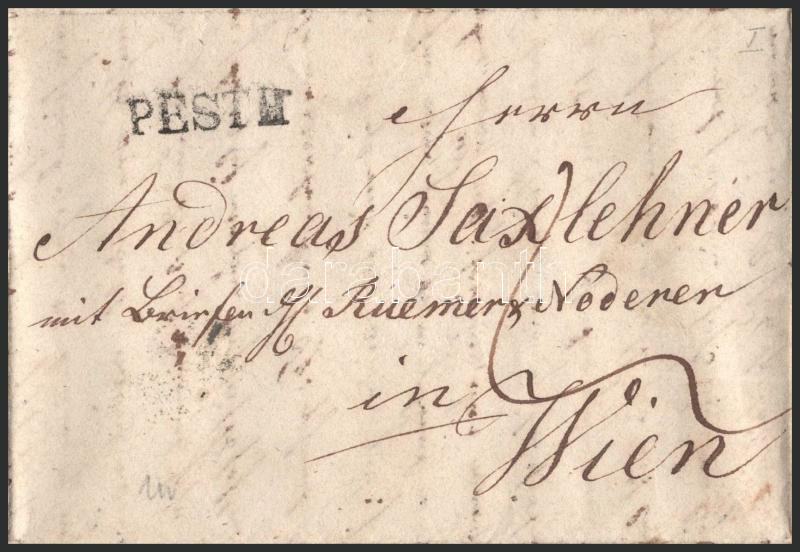 I
PESTH
Herrn
Andreas Saxlehner
darabanth
mit Briefen H Ruemer & Noderer
in
Wien